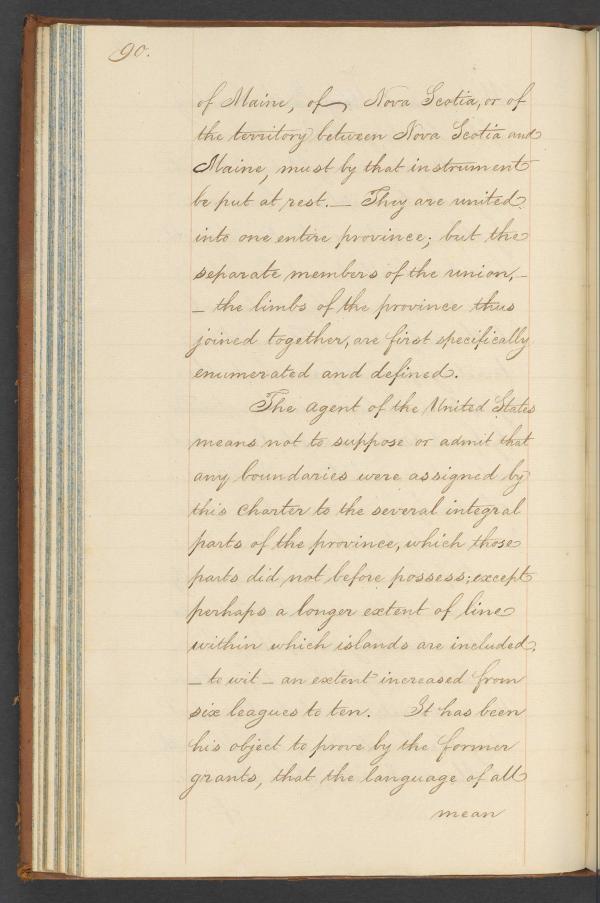 90.
of Maine, of Nova Scotia, or of
the territory between Nova Scotia and
Maine, must by that instrument
be put at rest. — They are united
into one entire province; but the
separate members of the union, —
— the limbs of the province thus
joined together, are first specifically
enumerated and defined.
The agent of the United States
means not to suppose or admit that
any boundaries were assigned by
this charter to the several integral
parts of the province, which those
parts did not before possess; except
perhaps a longer extent of line
within which islands are included,
— to wit — an extent increased from
six leagues to ten. It has been
his object to prove by the former
grants, that the language of all
mean